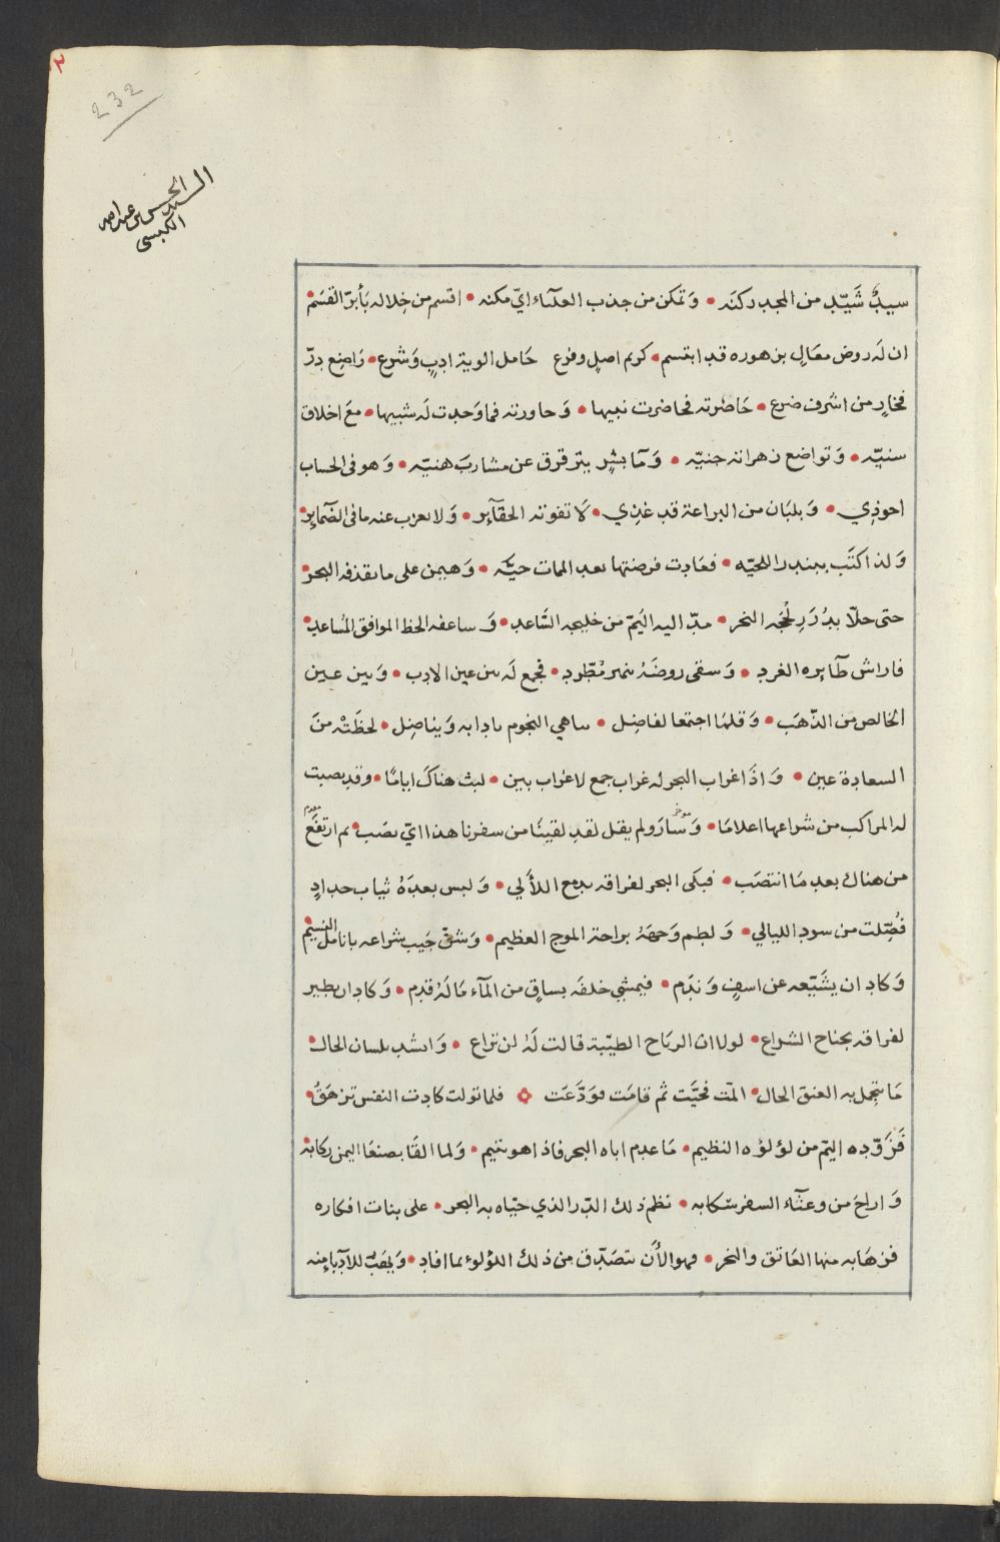 ٣
232
السيد الحسن بن عبدالله
الكبسي
سيدٌ شَيّد من المجد ركنَه • وَتمكن من جذب العلياء ايّ مكنه • اقسم من خلاله بَأبرّ القسَم •
ان لَه روض معَالٍ بزهوره قد ابتسم • كريم اصلٍ وفرع حَامل الوية ادبٍ وَشرع • رَاضع درّ
فخارٍ من اشرف ضرع • حَاضرته فحاضرت نبيها • وَحاورته فما وَجدت لَه شبيها • معَ اخلاق
سنيّه • وَتواضع زهراته جنيّه • وَمآ بشرٍ يترقرق عن مشاربَ هنيّه • وَهو في الحساب
احوذي • وَبلبَان من البراعة قد غذي • لَا تفوته الحقآير • وَلا يعزب عنه ما في الضمآير •
وَلذا كتَب ببندر اللحيّه • فعَادت فرضتها بعد الممات حيّه • وَهيمن على ما يقذفه البحر •
حتى حلّا بدُرَرِ لُججه النحر • مدّ اليه اليَمّ من خليجه السّاعد • وَساعفه الحظ الموافق المُساعد •
فاراش طآيره الغرد • وَسقى روضَهُ بنهر مُطّرد • فجمع لَه بين عين الادب • وَبين عين
الخالص من الذّهَب • وَقلمُا اجتمعا لفاضل • يباهي النجوم بادابه وَيناضل • لحظَتْه منَ
السعادة عين • وَاذَا غراب البحر له غراب جمع لا غراب بين • لبث هناكَ ايامًا • وقد نصبت
له المراكب من شراعها اعلامًا • وَسَارَ ولم يقل لقد لقينَا من سفرنا هذا ايّ نصَب • ثم ارتفَع
من هناك بعد مَا انتصَب • فبكى البحر لفراقه بدمع اللآلي • وَلبس بعدَهُ ثياب حدادٍ
فُصّلت من سود الليالي • وَلطم وَجهَهُ براحة الموج العظيم • وَشقّ جَيب شراعه بانامل النسيم •
وَكاد ان يشَيّعه عن اسفٍ وَندَم • فيمشي خلفَه بساقٍ من المآء مَا لَهُ قدم • وَكاد ان يطير
لفراقه بجناح الشراع • لولا ان الريَاح الطيّبة قالت لَهُ لن تراع • وَانشد بلسان الحال •
مَا يتجمل به العنق الحال • المّت فحيَّت ثم قامَت فوَدَّعَت فلما تولت كادت النفس تزهَقُ •
فَزَوّده اليَمّ من لؤلؤه النظيم • مَا عدم اباه البحر فاذا هو يتيم • وَلما القَا بصنعَا اليمن ركابه
وَاراحَ من وعثآء السفر سَكابه • نظم ذلك الدّر الذي حيّاه به البحر • على بنات افكاره
فزهَا به منها العَاتق والنحر • وهو الآن يتصَدّق من ذلك اللؤلوء بما افاد • وَيهَبُ للآدَبآء منه